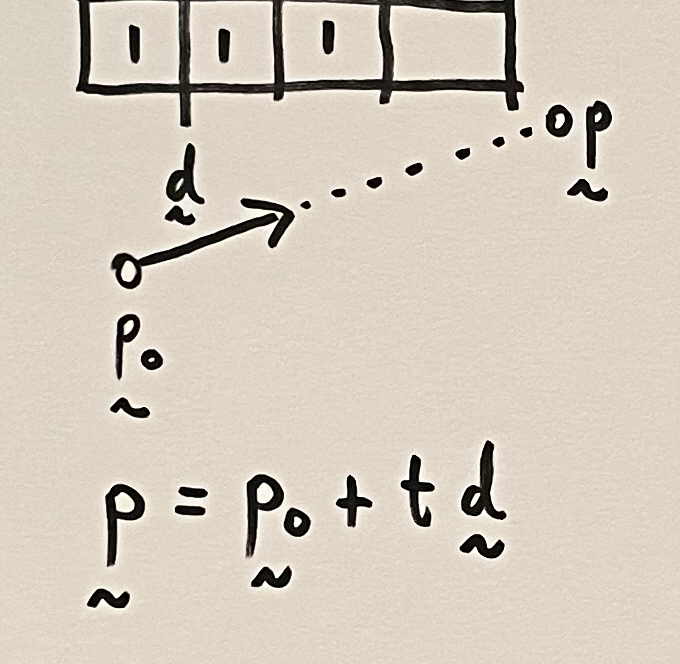 1 1 1
d
p
p₀
p = p₀ + t d